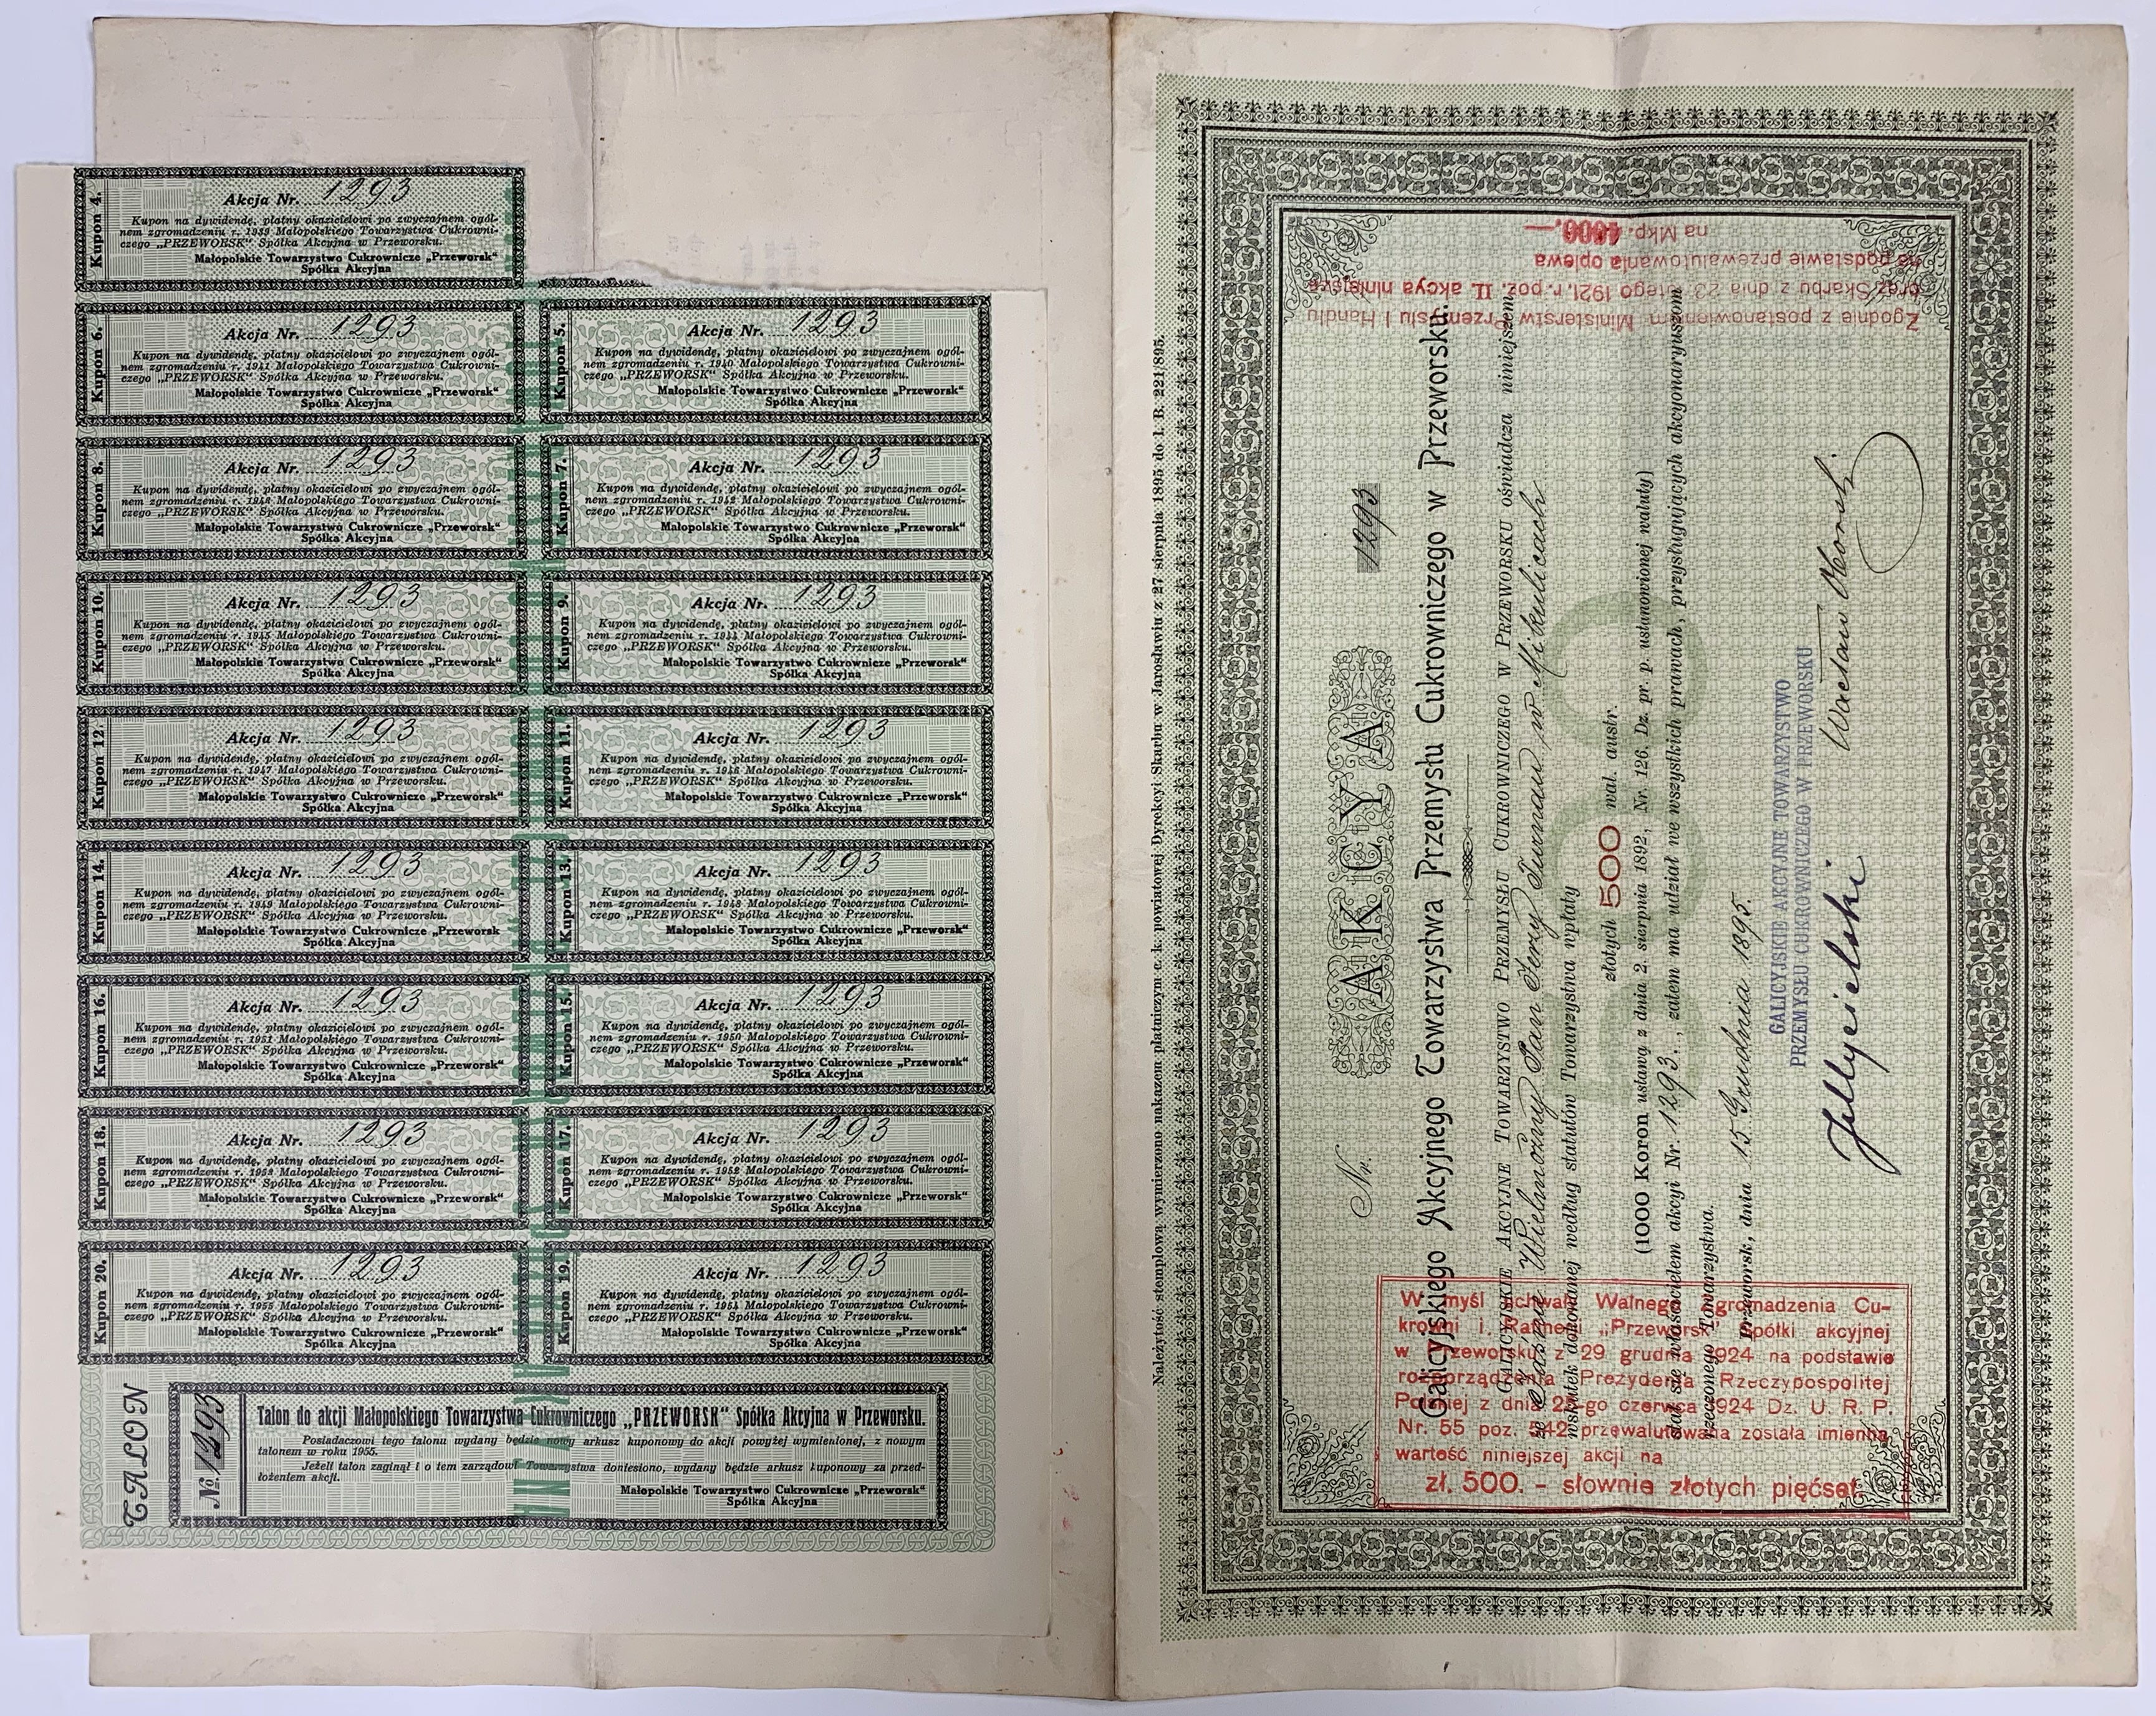 Kupon 4.
Akcja Nr. 1293
Kupon na dywidendę, płatny okazicielowi po zwyczajnem ogól-
nem zgromadzeniu r. 1939 Małopolskiego Towarzystwa Cukrowni-
czego „PRZEWORSK“ Spółka Akcyjna w Przeworsku.
Małopolskie Towarzystwo Cukrownicze „Przeworsk“
Spółka Akcyjna
Kupon 6.
Akcja Nr. 1293
Kupon na dywidendę, płatny okazicielowi po zwyczajnem ogól-
nem zgromadzeniu r. 1941 Małopolskiego Towarzystwa Cukrowni-
czego „PRZEWORSK“ Spółka Akcyjna w Przeworsku.
Małopolskie Towarzystwo Cukrownicze „Przeworsk“
Spółka Akcyjna
Kupon 5.
Akcja Nr. 1293
Kupon na dywidendę, płatny okazicielowi po zwyczajnem ogól-
nem zgromadzeniu r. 1940 Małopolskiego Towarzystwa Cukrowni-
czego „PRZEWORSK“ Spółka Akcyjna w Przeworsku.
Małopolskie Towarzystwo Cukrownicze „Przeworsk“
Spółka Akcyjna
Kupon 8.
Akcja Nr. 1293
Kupon na dywidendę, płatny okazicielowi po zwyczajnem ogól-
nem zgromadzeniu r. Małopolskiego Towarzystwa Cukrowni-
czego „PRZEWORSK“ Spółka Akcyjna w Przeworsku.
Małopolskie Towarzystwo Cukrownicze „Przeworsk“
Spółka Akcyjna
Kupon 7.
Akcja Nr. 1293
Kupon na dywidendę, płatny okazicielowi po zwyczajnem ogól-
nem zgromadzeniu r. 1942 Małopolskiego Towarzystwa Cukrowni-
czego „PRZEWORSK“ Spółka Akcyjna w Przeworsku.
Małopolskie Towarzystwo Cukrownicze „Przeworsk“
Spółka Akcyjna
Kupon 10.
Akcja Nr. 1293
Kupon na dywidendę, płatny okazicielowi po zwyczajnem ogól-
nem zgromadzeniu r. 1945 Małopolskiego Towarzystwa Cukrowni-
czego „PRZEWORSK“ Spółka Akcyjna w Przeworsku.
Małopolskie Towarzystwo Cukrownicze „Przeworsk“
Spółka Akcyjna
Kupon 9.
Akcja Nr. 1293
Kupon na dywidendę, płatny okazicielowi po zwyczajnem ogól-
nem zgromadzeniu r. 1944 Małopolskiego Towarzystwa Cukrowni-
czego „PRZEWORSK“ Spółka Akcyjna w Przeworsku.
Małopolskie Towarzystwo Cukrownicze „Przeworsk“
Spółka Akcyjna
Kupon 12.
Akcja Nr. 1293
Kupon na dywidendę, płatny okazicielowi po zwyczajnem ogól-
nem zgromadzeniu r. 1947 Małopolskiego Towarzystwa Cukrowni-
czego „PRZEWORSK“ Spółka Akcyjna w Przeworsku.
Małopolskie Towarzystwo Cukrownicze „Przeworsk“
Spółka Akcyjna
Kupon 11.
Akcja Nr. 1293
Kupon na dywidendę, płatny okazicielowi po zwyczajnem ogól-
nem zgromadzeniu r. Małopolskiego Towarzystwa Cukrowni-
czego „PRZEWORSK“ Spółka Akcyjna w Przeworsku.
Małopolskie Towarzystwo Cukrownicze „Przeworsk“
Spółka Akcyjna
Kupon 14.
Akcja Nr. 1293
Kupon na dywidendę, płatny okazicielowi po zwyczajnem ogól-
nem zgromadzeniu r. 1949 Małopolskiego Towarzystwa Cukrowni-
czego „PRZEWORSK“ Spółka Akcyjna w Przeworsku.
Małopolskie Towarzystwo Cukrownicze „Przeworsk
Spółka Akcyjna
Kupon 13.
Akcja Nr. 1293
Kupon na dywidendę, płatny okazicielowi po zwyczajnem ogól-
nem zgromadzeniu r. 1948 Małopolskiego Towarzystwa Cukrowni-
czego „PRZEWORSK“ Spółka Akcyjna w Przeworsku.
Małopolskie Towarzystwo Cukrownicze „Przeworsk“
Spółka Akcyjna
Kupon 16.
Akcja Nr. 1293
Kupon na dywidendę, płatny okazicielowi po zwyczajnem ogól-
nem zgromadzeniu r. 1951 Małopolskiego Towarzystwa Cukrowni-
czego „PRZEWORSK“ Spółka Akcyjna w Przeworsku.
Małopolskie Towarzystwo Cukrownicze „Przeworsk“
Spółka Akcyjna
Kupon 15.
Akcja Nr. 1293
Kupon na dywidendę, płatny okazicielowi po zwyczajnem ogól-
nem zgromadzeniu r. 1950 Małopolskiego Towarzystwa Cukrowni-
czego „PRZEWORSK“ Spółka Akcyjna w Przeworsku.
Małopolskie Towarzystwo Cukrownicze „Przeworsk“
Spółka Akcyjna
Kupon 18.
Akcja Nr. 1293
Kupon na dywidendę, płatny okazicielowi po zwyczajnem ogól-
nem zgromadzeniu r. Małopolskiego Towarzystwa Cukrowni-
czego „PRZEWORSK“ Spółka Akcyjna w Przeworsku.
Małopolskie Towarzystwo Cukrownicze „Przeworsk“
Spółka Akcyjna
Kupon 17.
Akcja Nr. 1293
Kupon na dywidendę, płatny okazicielowi po zwyczajnem ogól-
nem zgromadzeniu r. 1952 Małopolskiego Towarzystwa Cukrowni-
czego „PRZEWORSK“ Spółka Akcyjna w Przeworsku.
Małopolskie Towarzystwo Cukrownicze „Przeworsk“
Spółka Akcyjna
Kupon 20.
Akcja Nr. 1293
Kupon na dywidendę, płatny okazicielowi po zwyczajnem ogól-
nem zgromadzeniu r. 1955 Małopolskiego Towarzystwa Cukrowni-
czego „PRZEWORSK“ Spółka Akcyjna w Przeworsku.
Małopolskie Towarzystwo Cukrownicze „Przeworsk“
Spółka Akcyjna
Kupon 19.
Akcja Nr. 1293
Kupon na dywidendę, płatny okazicielowi po zwyczajnem ogól-
nem zgromadzeniu r. 1954 Małopolskiego Towarzystwa Cukrowni-
czego „PRZEWORSK“ Spółka Akcyjna w Przeworsku.
Małopolskie Towarzystwo Cukrownicze „Przeworsk“
Spółka Akcyjna
TALON
No. 1293
Talon do akcji Małopolskiego Towarzystwa Cukrowniczego „PRZEWORSK“ Spółka Akcyjna w Przeworsku.
Posiadaczowi tego talonu wydany będzie nowy arkusz kuponowy do akcji powyżej wymienionej, z nowym
talonem w roku 1955.
Jeżeli talon zaginął i o tem zarządowi Towarzystwa doniesiono, wydany będzie arkusz kuponowy za przed-
łożeniem akcji.
Małopolskie Towarzystwo Cukrownicze „Przeworsk“
Spółka Akcyjna
Należytość stemplową wymierzono nakazem płatniczym c. k. powiatowej Dyrekcyi Skarbu w Jarosławiu z 27 sierpnia 1895 do l. B. 221/895.
Nr. 1293
AKCYA
Galicyjskiego Akcyjnego Towarzystwa Przemysłu Cukrowniczego w Przeworsku.
GALICYJSKIE AKCYJNE TOWARZYSTWO PRZEMYSŁU CUKROWNICZEGO W PRZEWORSKU oświadcza niniejszem,
że Jaśnie Wielmożny Pan Jerzy Turnau w Mikulicach
wskutek dokonanej według statutów Towarzystwa wpłaty
złotych 500 wal. austr.
(1000 Koron ustawą z dnia 2. sierpnia 1892, Nr. 126. Dz. pr. p. ustanowionej waluty)
stał się właścicielem akcyi Nr. 1293., zatem ma udział we wszystkich prawach, przysługujących akcyonaryuszom
rzeczonego Towarzystwa.
Przeworsk, dnia 15 Grudnia 1895.
GALICYJSKIE AKCYJNE TOWARZYSTWO
PRZEMYSŁU CUKROWNICZEGO W PRZEWORSKU
Zgodnie z postanowieniem Ministerstw Przemysłu i Handlu
oraz Skarbu z dnia 23 lutego 1921. r. poz. II. akcya niniejsza
na podstawie przewalutowania opiewa
na Mkp.
W myśl uchwały Walnego Zgromadzenia Cu-
krowni i Rafinerji „Przeworsk“ Spółki akcyjnej
w Przeworsku z 29 grudnia 1924 na podstawie
rozporządzenia Prezydenta Rzeczypospolitej
Polskiej z dnia 25-go czerwca 1924 Dz. U. R. P.
Nr. 55 poz. 542 przewalutowana została imienna
wartość niniejszej akcji na
zł. 500. - słownie złotych pięćset